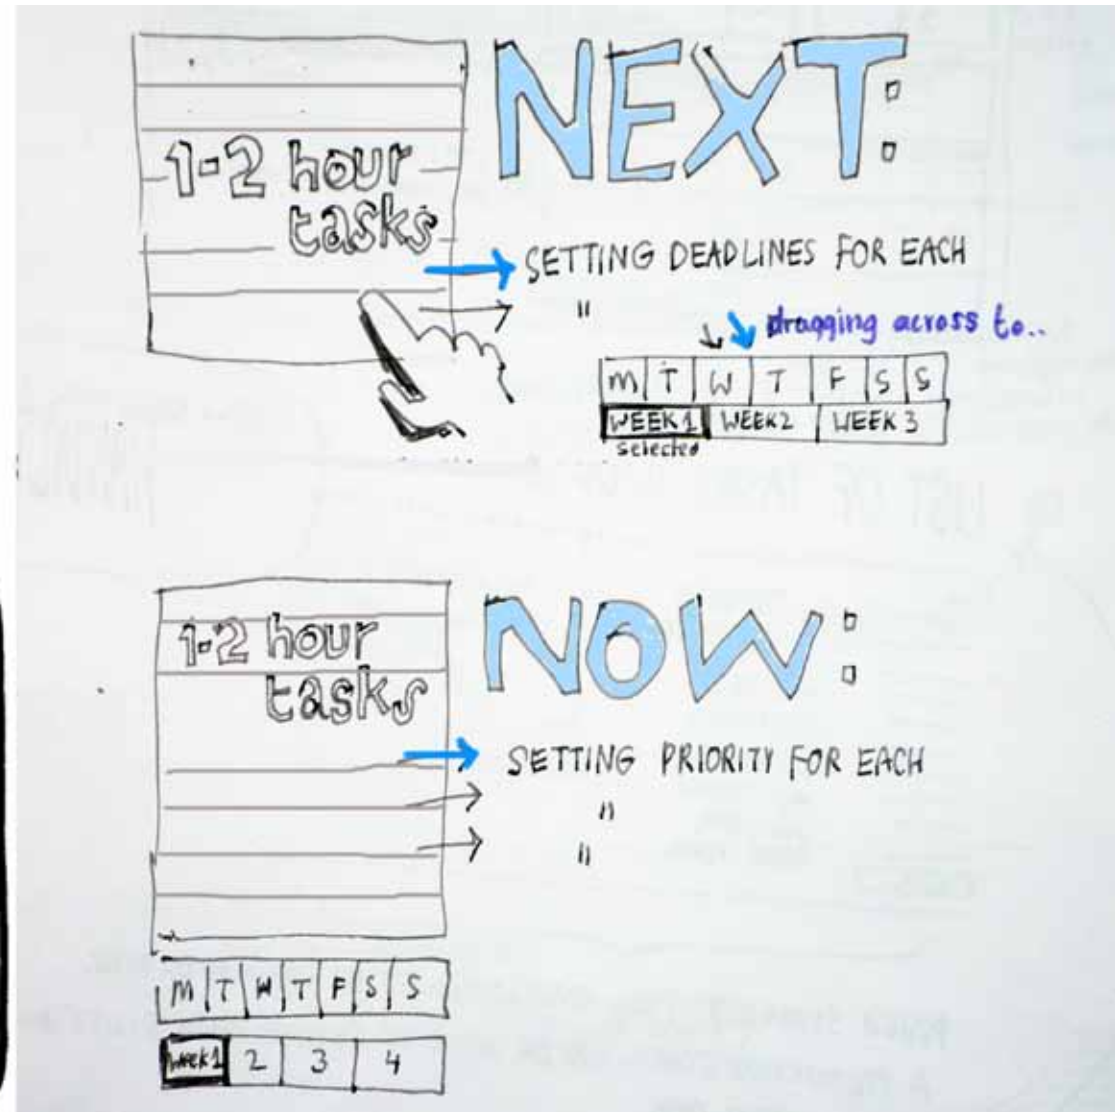 1-2 hour
tasks
NEXT:
SETTING DEADLINES FOR EACH
"
dragging across to..
M T W T F S S
WEEK 1 WEEK 2 WEEK 3
selected
1-2 hour
tasks
NOW:
SETTING PRIORITY FOR EACH
"
"
M T W T F S S
WEEK 1 2 3 4